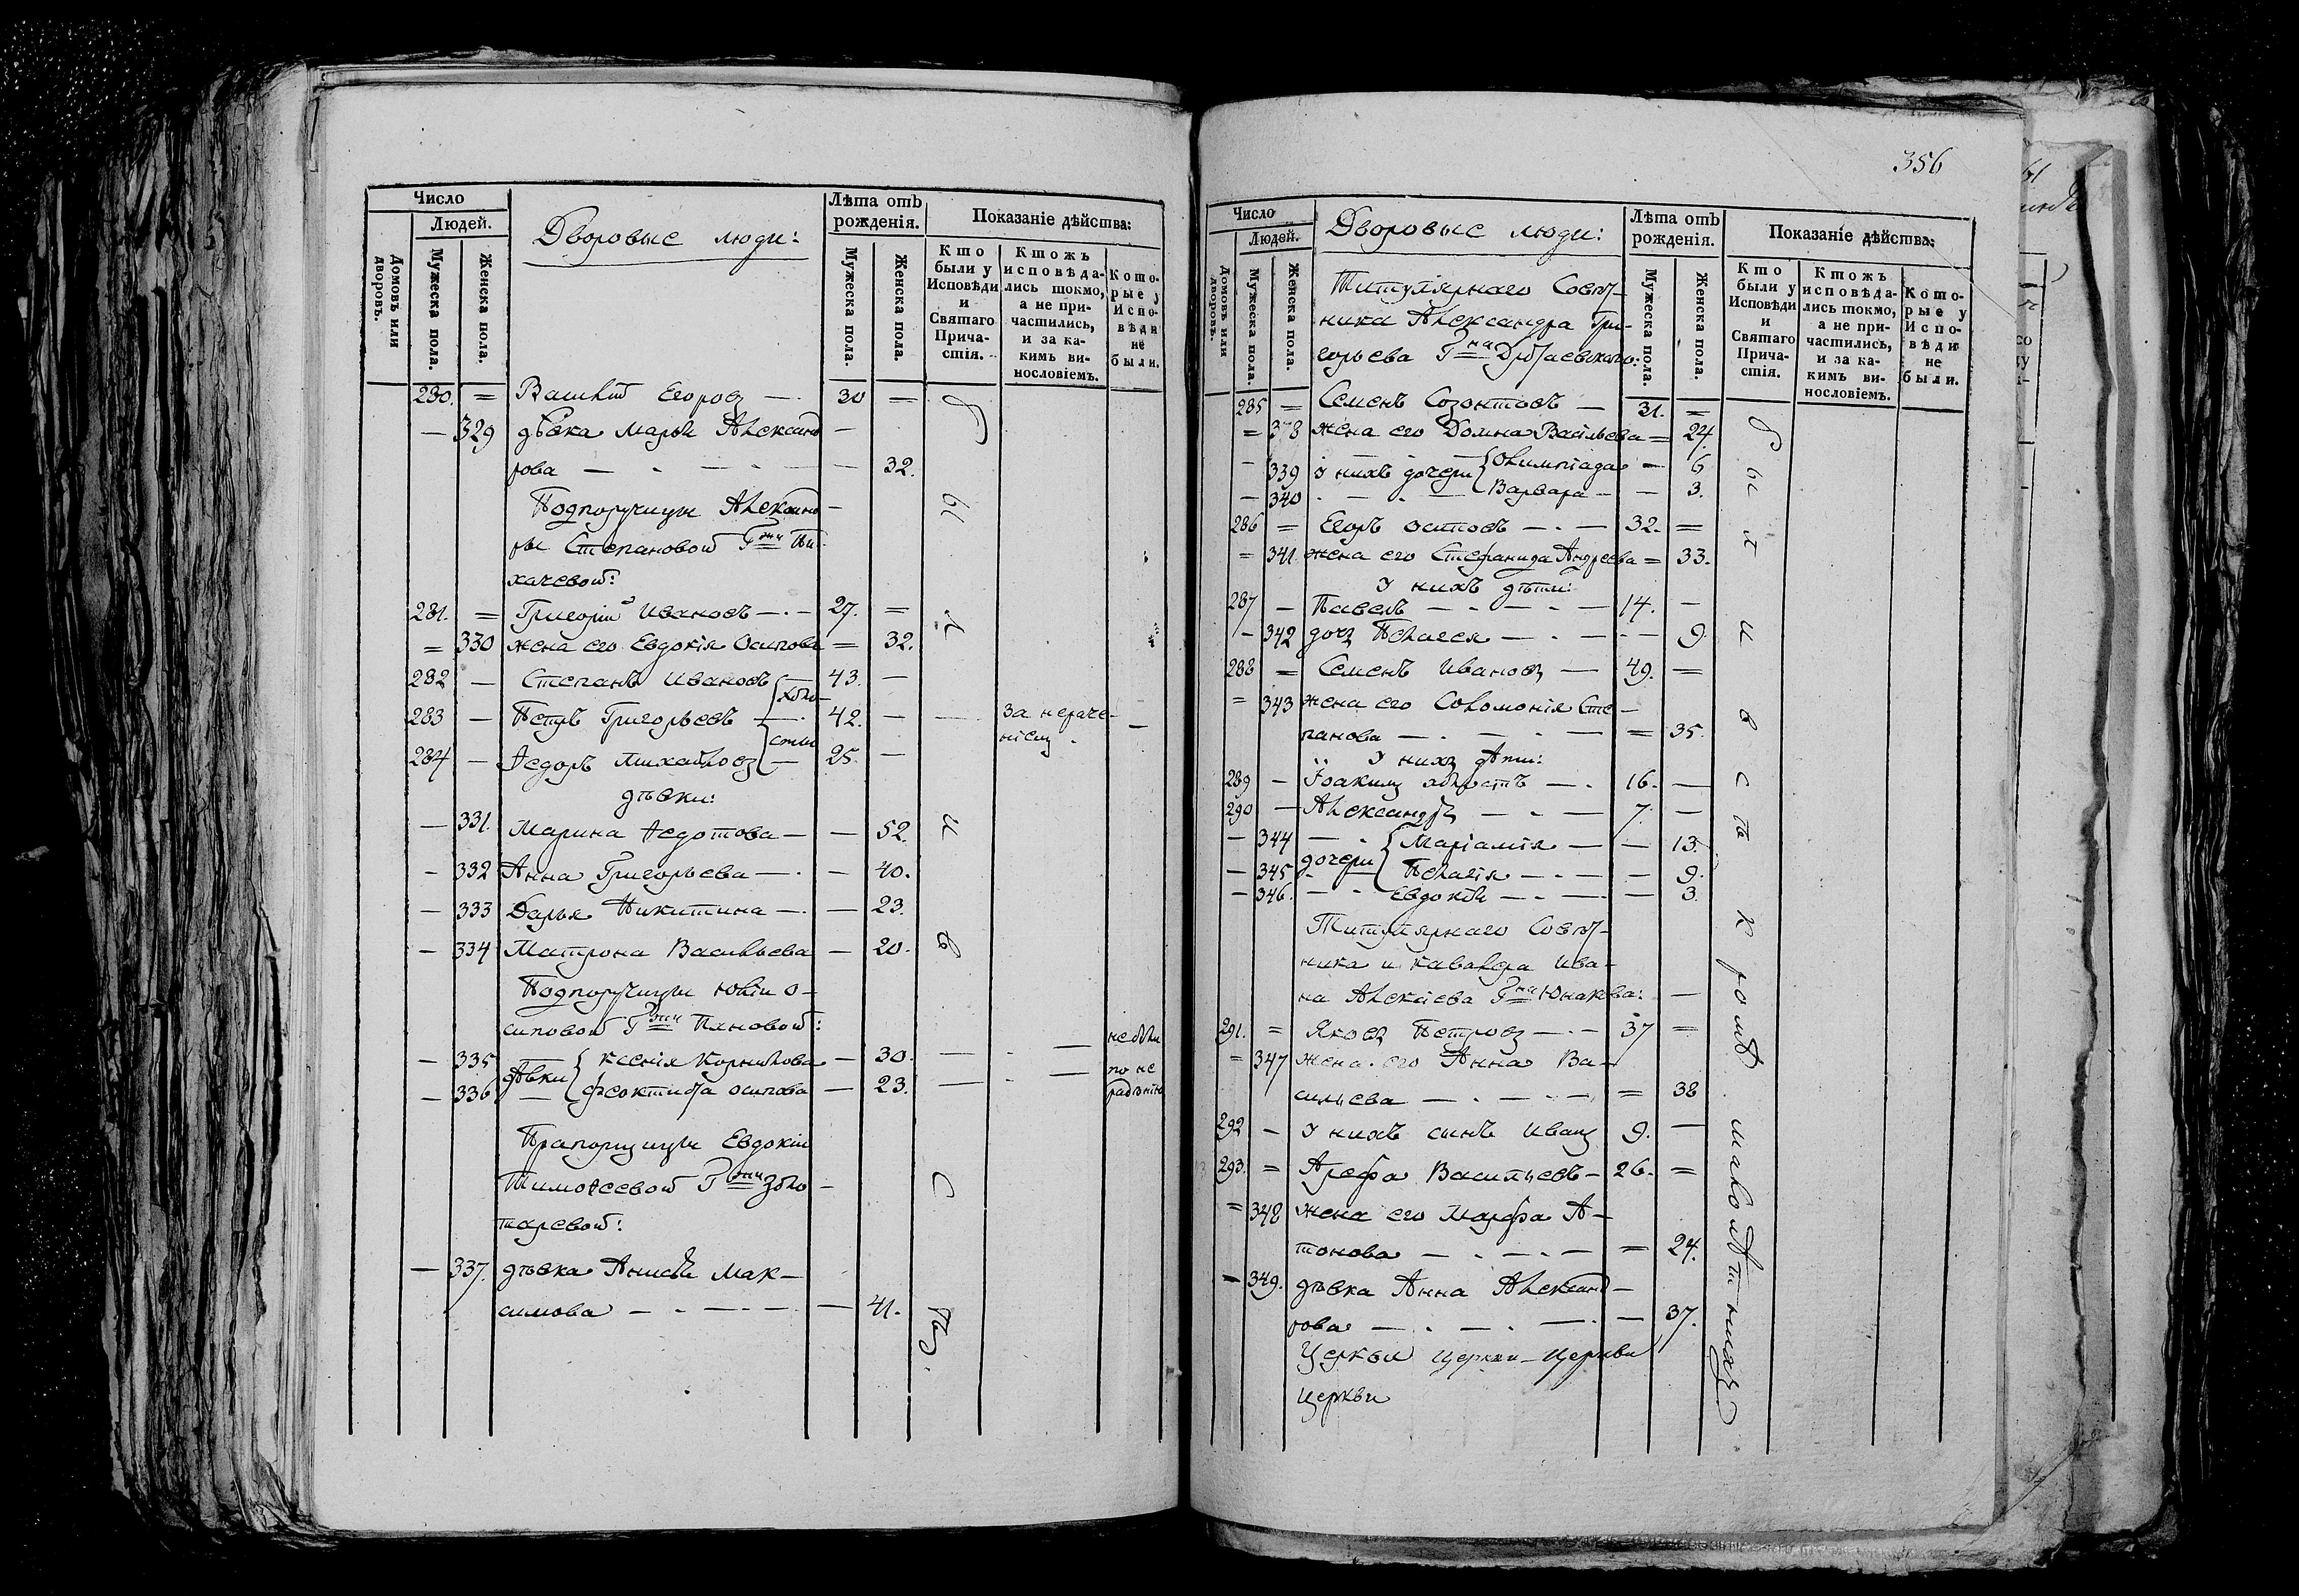 Число
Людей.
Домовъ или дворовъ.
Мужеска пола.
Женска пола.
Дворовые люди:
Лѣта отъ рожденія.
Мужеска пола.
Женска пола.
Показаніе дѣйства:
Кто были у Исповѣди и Святаго Прича-стія.
Ктожъ исповѣда-лись токмо, а не при-частились, и за ка-кимъ ви-нословіемъ.
Кото-рые у Испо-вѣди не были.
280. = Василій Егоровъ — 30 =
— 329 дѣвка Марья Александ —
рова — — — 32.
Подпоручицы Александ
ры Степановой Гжи
хачевой:
281. = Григорій Ивановъ — 27. =
= 330 жена его Евдокія Осипова = 32.
282 — Степанъ Ивановъ — 43. —
холо
283 — Петръ Григорьевъ — 42. — — за нераче- —
ніемъ.
стые
284 — Ѳедоръ Михайловъ — 25. —
дѣвки:
— 331. Марина Ѳедотова — — 52.
— 332 Анна Григорьева — — 40.
— 333 Дарья Никитина — — 23.
— 334 Матрона Васильева — 20.
Подпоручицы Юліи О-
сиповой Гжи Пановой:
не были
— 335 дѣвки Ксенія Корнилова — 30. — —
по не
— 336 — Феоктиста Осипова — 23. — —
радѣнію
Прапорщицы Евдокіи
Тимоѳеевой Гжи Золо
таревой:
— 337. дѣвка Анисья Мак-
симова — — — 41.
356
Число
Людей.
Домовъ или дворовъ.
Мужеска пола.
Женска пола.
Дворовые люди:
Лѣта отъ рожденія.
Мужеска пола.
Женска пола.
Показаніе дѣйства:
Кто были у Исповѣди и Святаго Прича-стія.
Ктожъ исповѣда-лись токмо, а не при-частились, и за ка-кимъ ви-нословіемъ.
Кото-рые у Испо-вѣди не были.
Титулярнаго Совѣт-
ника Александра Гри-
горьева Гна
285 = Семенъ Созонтовъ — 31. =
= 378 жена его Домна Васильева = 24.
— 339 у нихъ дочери Олимпіада — 6
— 340 Варвара — — 3.
286 = Егоръ Осиповъ — 32. =
= 341. жена его Стефанида Андреева = 33.
у нихъ дѣти:
287 — Павелъ — — 14. —
— 342 дочь Пелагея — — 9.
288 = Семенъ Ивановъ — 49. =
= 343 жена его Соломонія Сте-
панова — — = 35.
у нихъ дѣти:
289 — Іоакимъ холостъ — 16. —
290 — Александръ — — 7. —
— 344 — Маріамія — — 13.
— 345 дочери Пелагія — — 9.
— 346. — Евдокія — — 3.
Титулярнаго Совѣт-
ника и кавалера Ива-
на Алексѣева Гна Юнакова:
291. = Яковъ Петровъ — 37 =
= 347 жена его Анна Ва-
сильева — — = 38
292 — у нихъ сынъ Иванъ 9. —
293. = Арефа Васильевъ — 26. =
= 348 жена его Марфа А-
тонова — — = 24.
— 349. дѣвка Анна Александ-
рова — — — 37.
Церкви Церкви — Церкви
церкви
были у исп
и всѣ кромѣ малолѣтнихъ